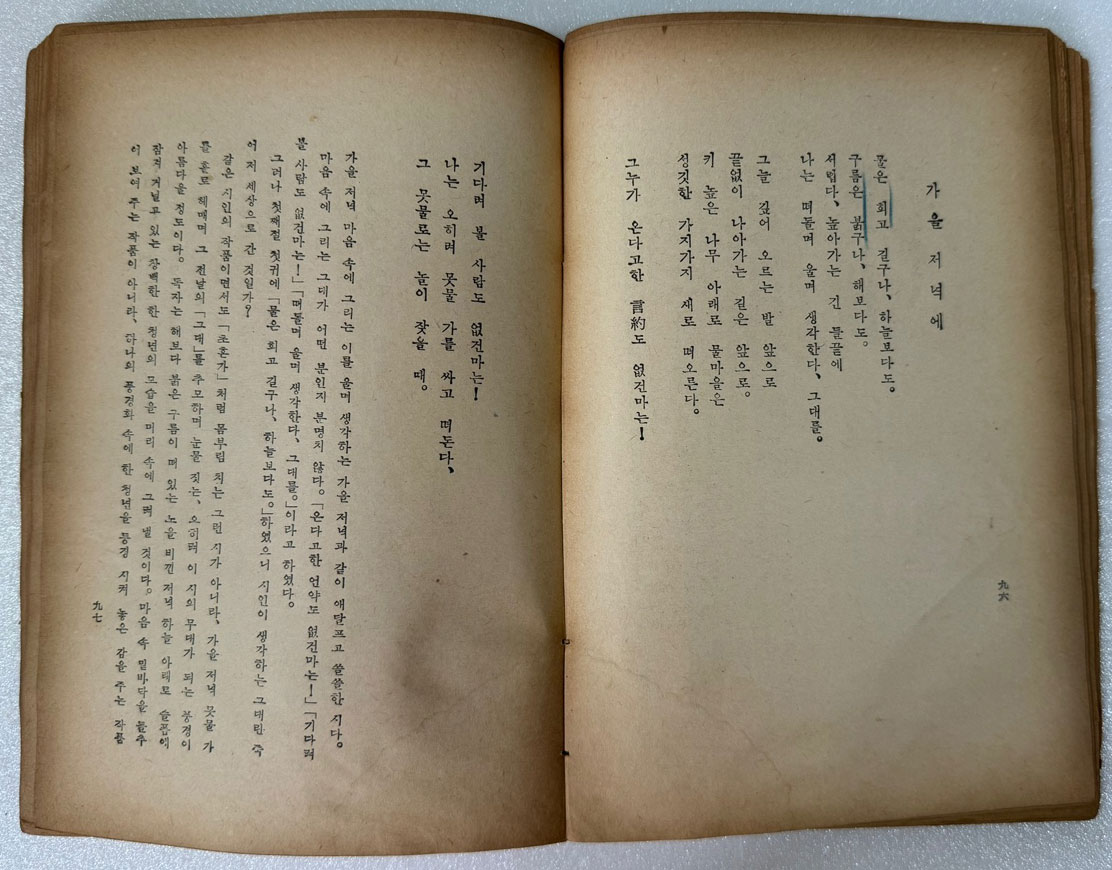 가 을 저 녁 에
물은 희고 길구나、하늘보다도。
구름은 붉구나、해보다도。
서럽다、높아가는 긴 들끝에
나는 떠돌며 울며 생각한다、그대를。
그늘 깊어 오르는 발 앞으로
끝없이 나아가는 길은 앞으로。
키 높은 나무 아래로 물마을은
성깃한 가지가지 새로 떠오른다。
그누가 온다고한 言約도 없건마는!
九六
기다려 볼 사람도 없건마는!
나는 오히려 못물 가를 싸고 떠돈다、
그 못물로는 놀이 잦을 때。
가을 저녁 마음 속에 그리는 이를 울며 생각하는 가을 저녁과 같이 애달프고 쓸쓸한 시다。
마음 속에 그리는 그대가 어떤 분인지 분명치 않다。「온다고한 언약도 없건마는!」「기다려
볼 사람도 없건마는!」「떠돌며 울며 생각한다、그대를。」이라고 하였다。
그러나 첫째절 첫귀에「물은 희고 길구나、하늘보다도。」하였으니 시인이 생각하는 그대란 죽
어 저 세상으로 간 것일가?
같은 시인의 작품이면서도「초혼가」처럼 몸부림 치는 그런 시가 아니라、가을 저녁 못물 가
를 홀로 헤매며 그 전날의「그대」를 추모하며 눈물 짓는、오히려 이 시의 무대가 되는 풍경이
아름다울 정도이다。독자는 해보다 붉은 구름이 떠 있는 노을 비낀 저녁 하늘 아래로 슬픔에
잠겨 거닐고 있는 창백한 한 청년의 모습을 머리 속에 그려 낼 것이다。마음 속 밑바닥을 들추
어 보여 주는 작품이 아니라、하나의 풍경화 속에 한 청년을 등장 시켜 놓은 감을 주는 작품
九七